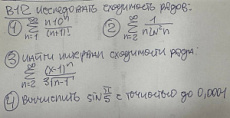 В12 исследовать сходимость рядов:
① ∑_{n=1}^{∞} n10ⁿ/(n+1)! ② ∑_{n=2}^{∞} 1/(n ln²n)
③ найти интервал сходимости ряда:
∑_{n=2}^{∞} (x-1)ⁿ/(3ⁿ(n-1))
④ вычислить sin π/5 с точностью до 0,0001